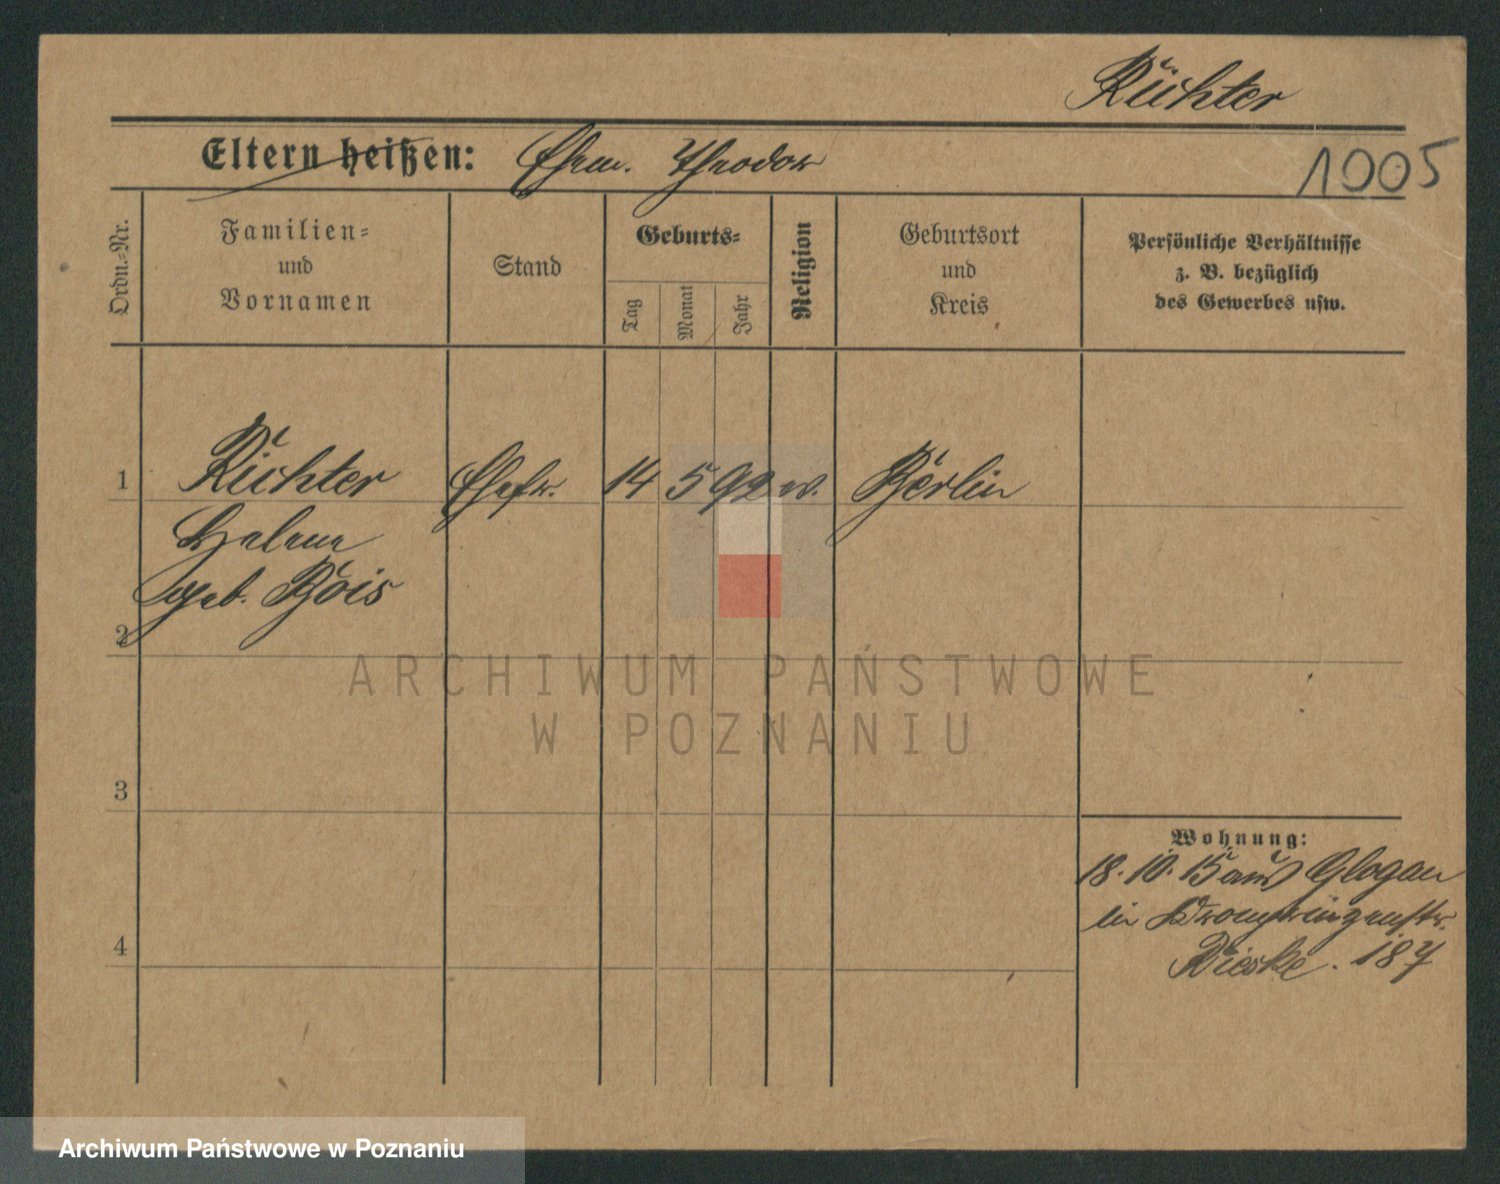 Richter
Eltern heißen: Ehem. Theodor
1005
Ordn.-Nr.
Familien-
und
Vornamen
Stand
Geburts-
Tag
Monat
Jahr
Religion
Geburtsort
und
Kreis
Persönliche Verhältnisse
z. B. bezüglich
des Gewerbes usw.
1 Richter Ehefr. 14 5 92 ev. Berlin
Helene
geb. Bois
2
ARCHIWUM PAŃSTWOWE
W POZNANIU
3
Wohnung:
18. 10. 15 aus Glogau
in Kronprinzenstr.
4
187
Archiwum Państwowe w Poznaniu